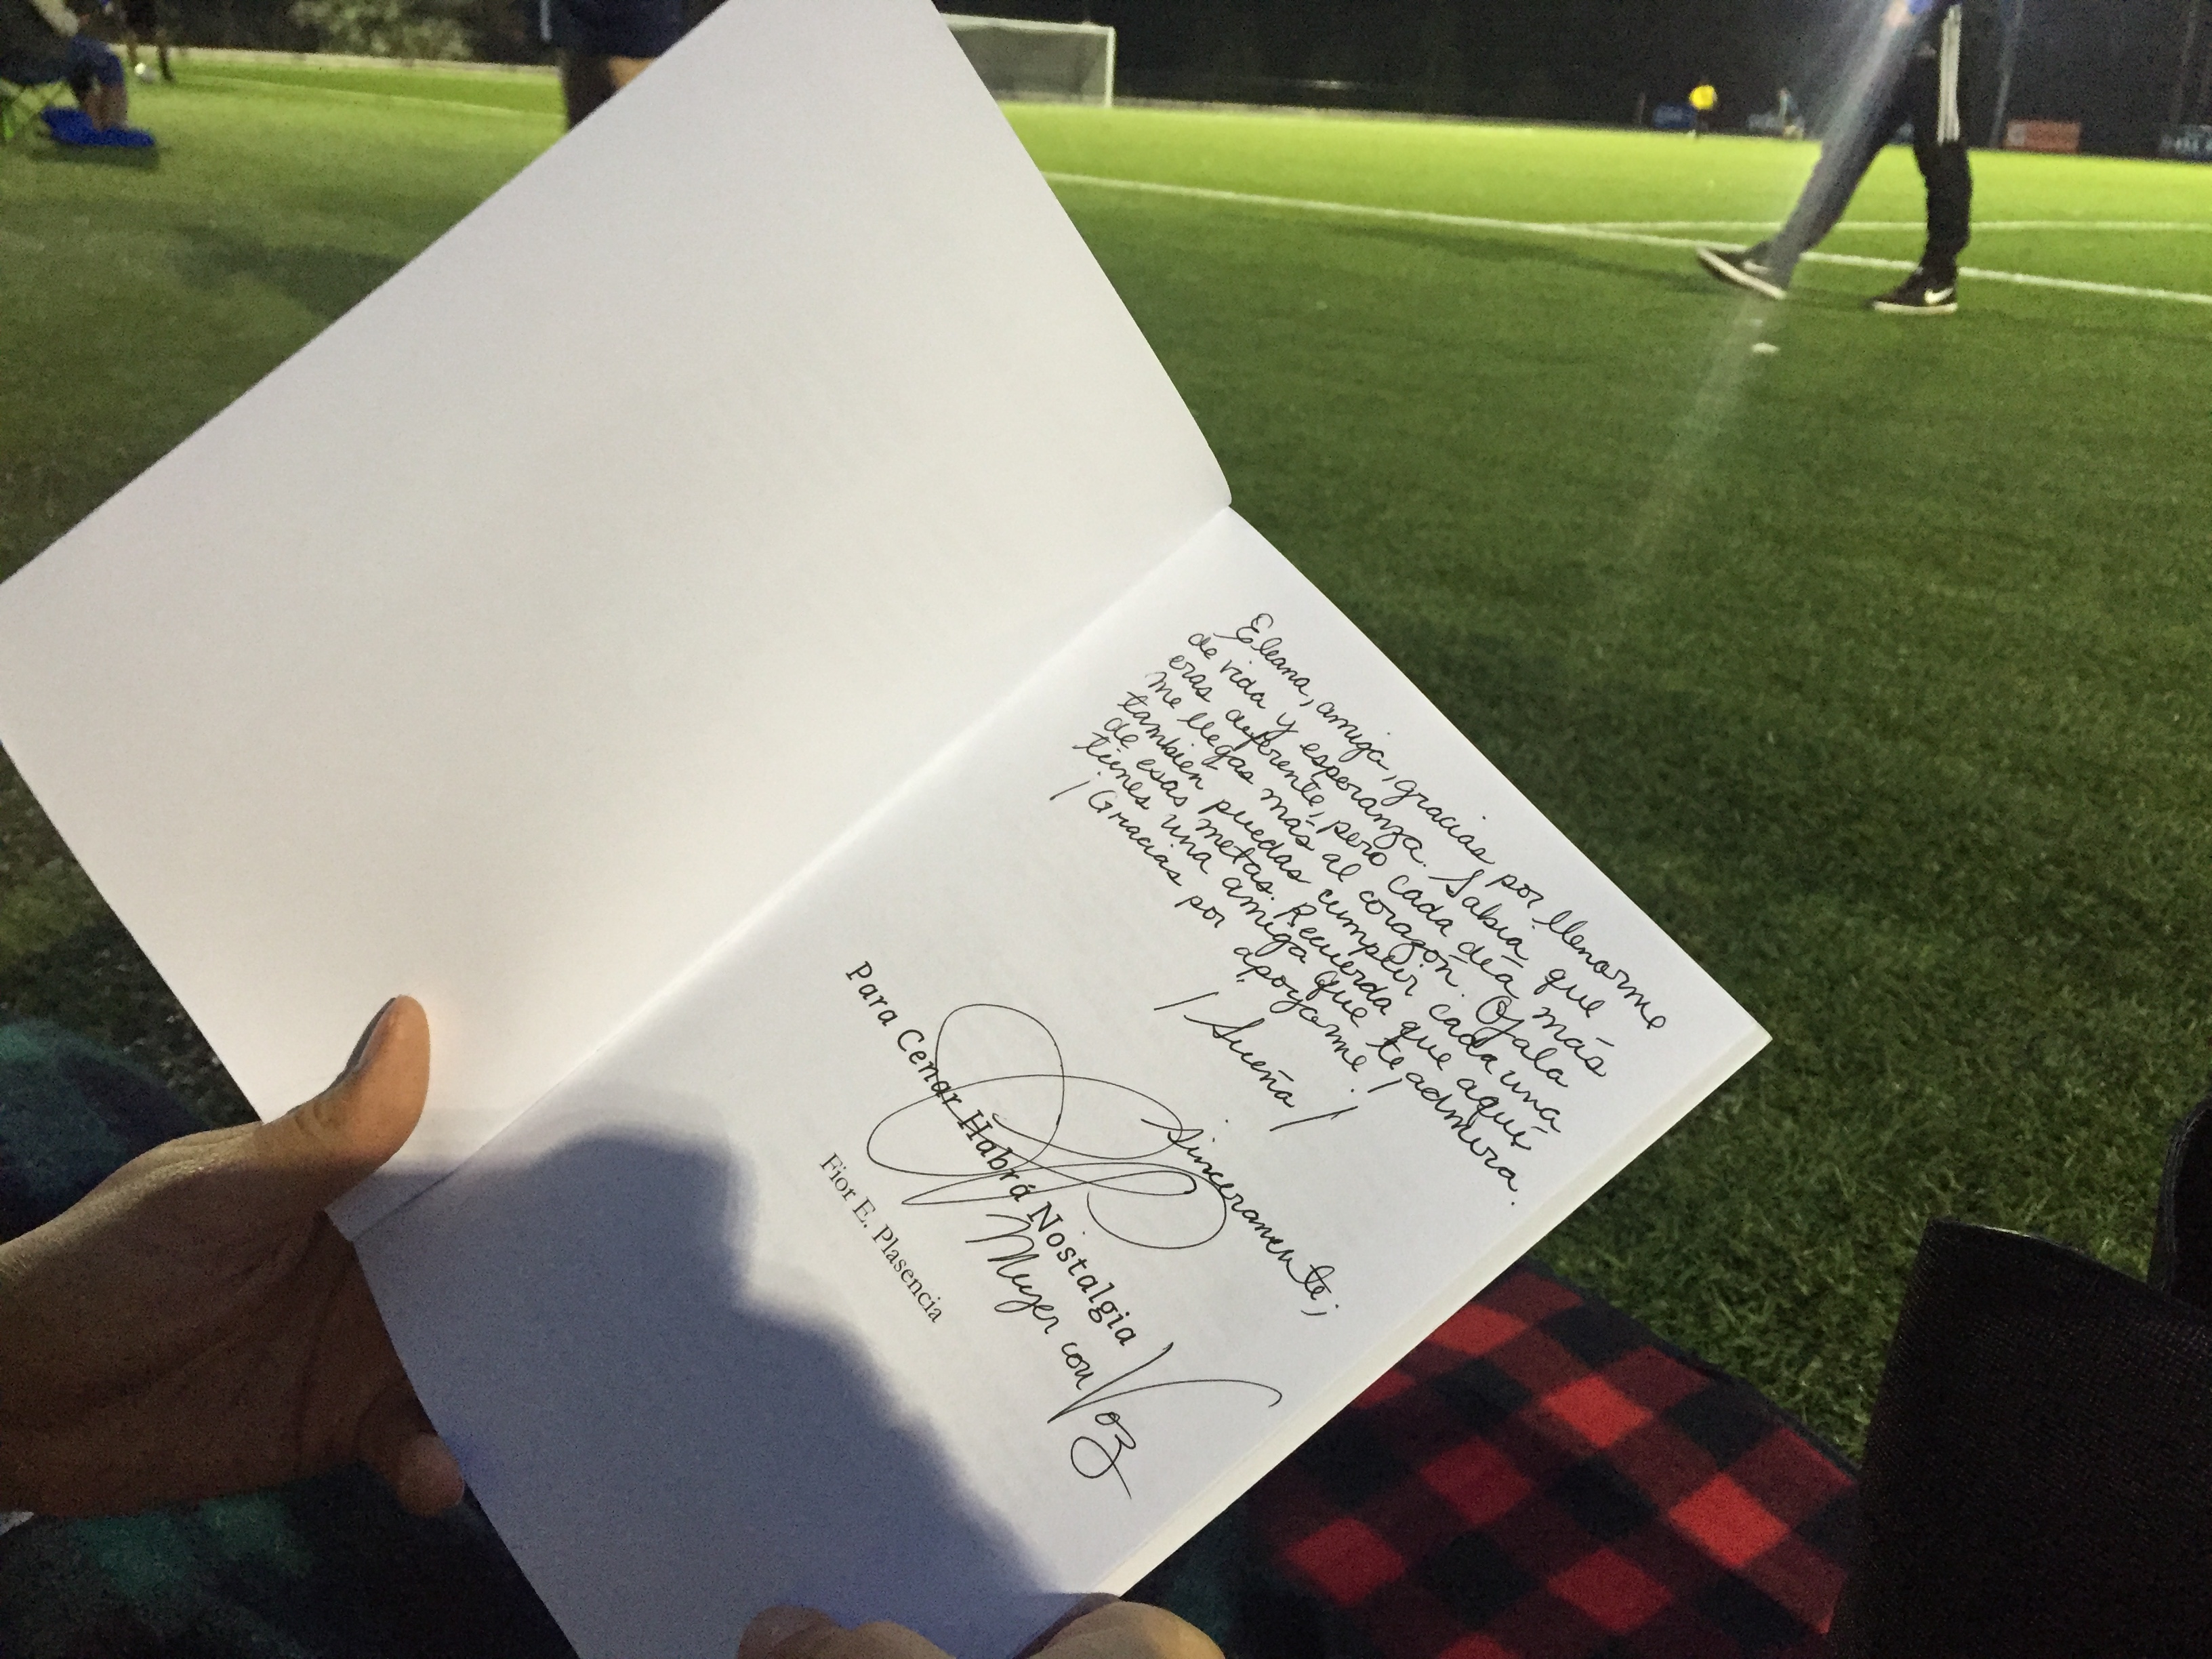 Eleana, amiga, gracias por llenarme
de vida y esperanza. Sabía que
eras diferente, pero cada día más
me llegas más al corazón. Ojala
también puedas cumplir cada una
de esas metas. Recuerda que aquí
tienes una amiga que te admira.
¡Gracias por apoyarme!
¡Sueña!
Sinceramente;
Para Cenar Habrá Nostalgia
Mujer con Voz
Fior E. Plasencia